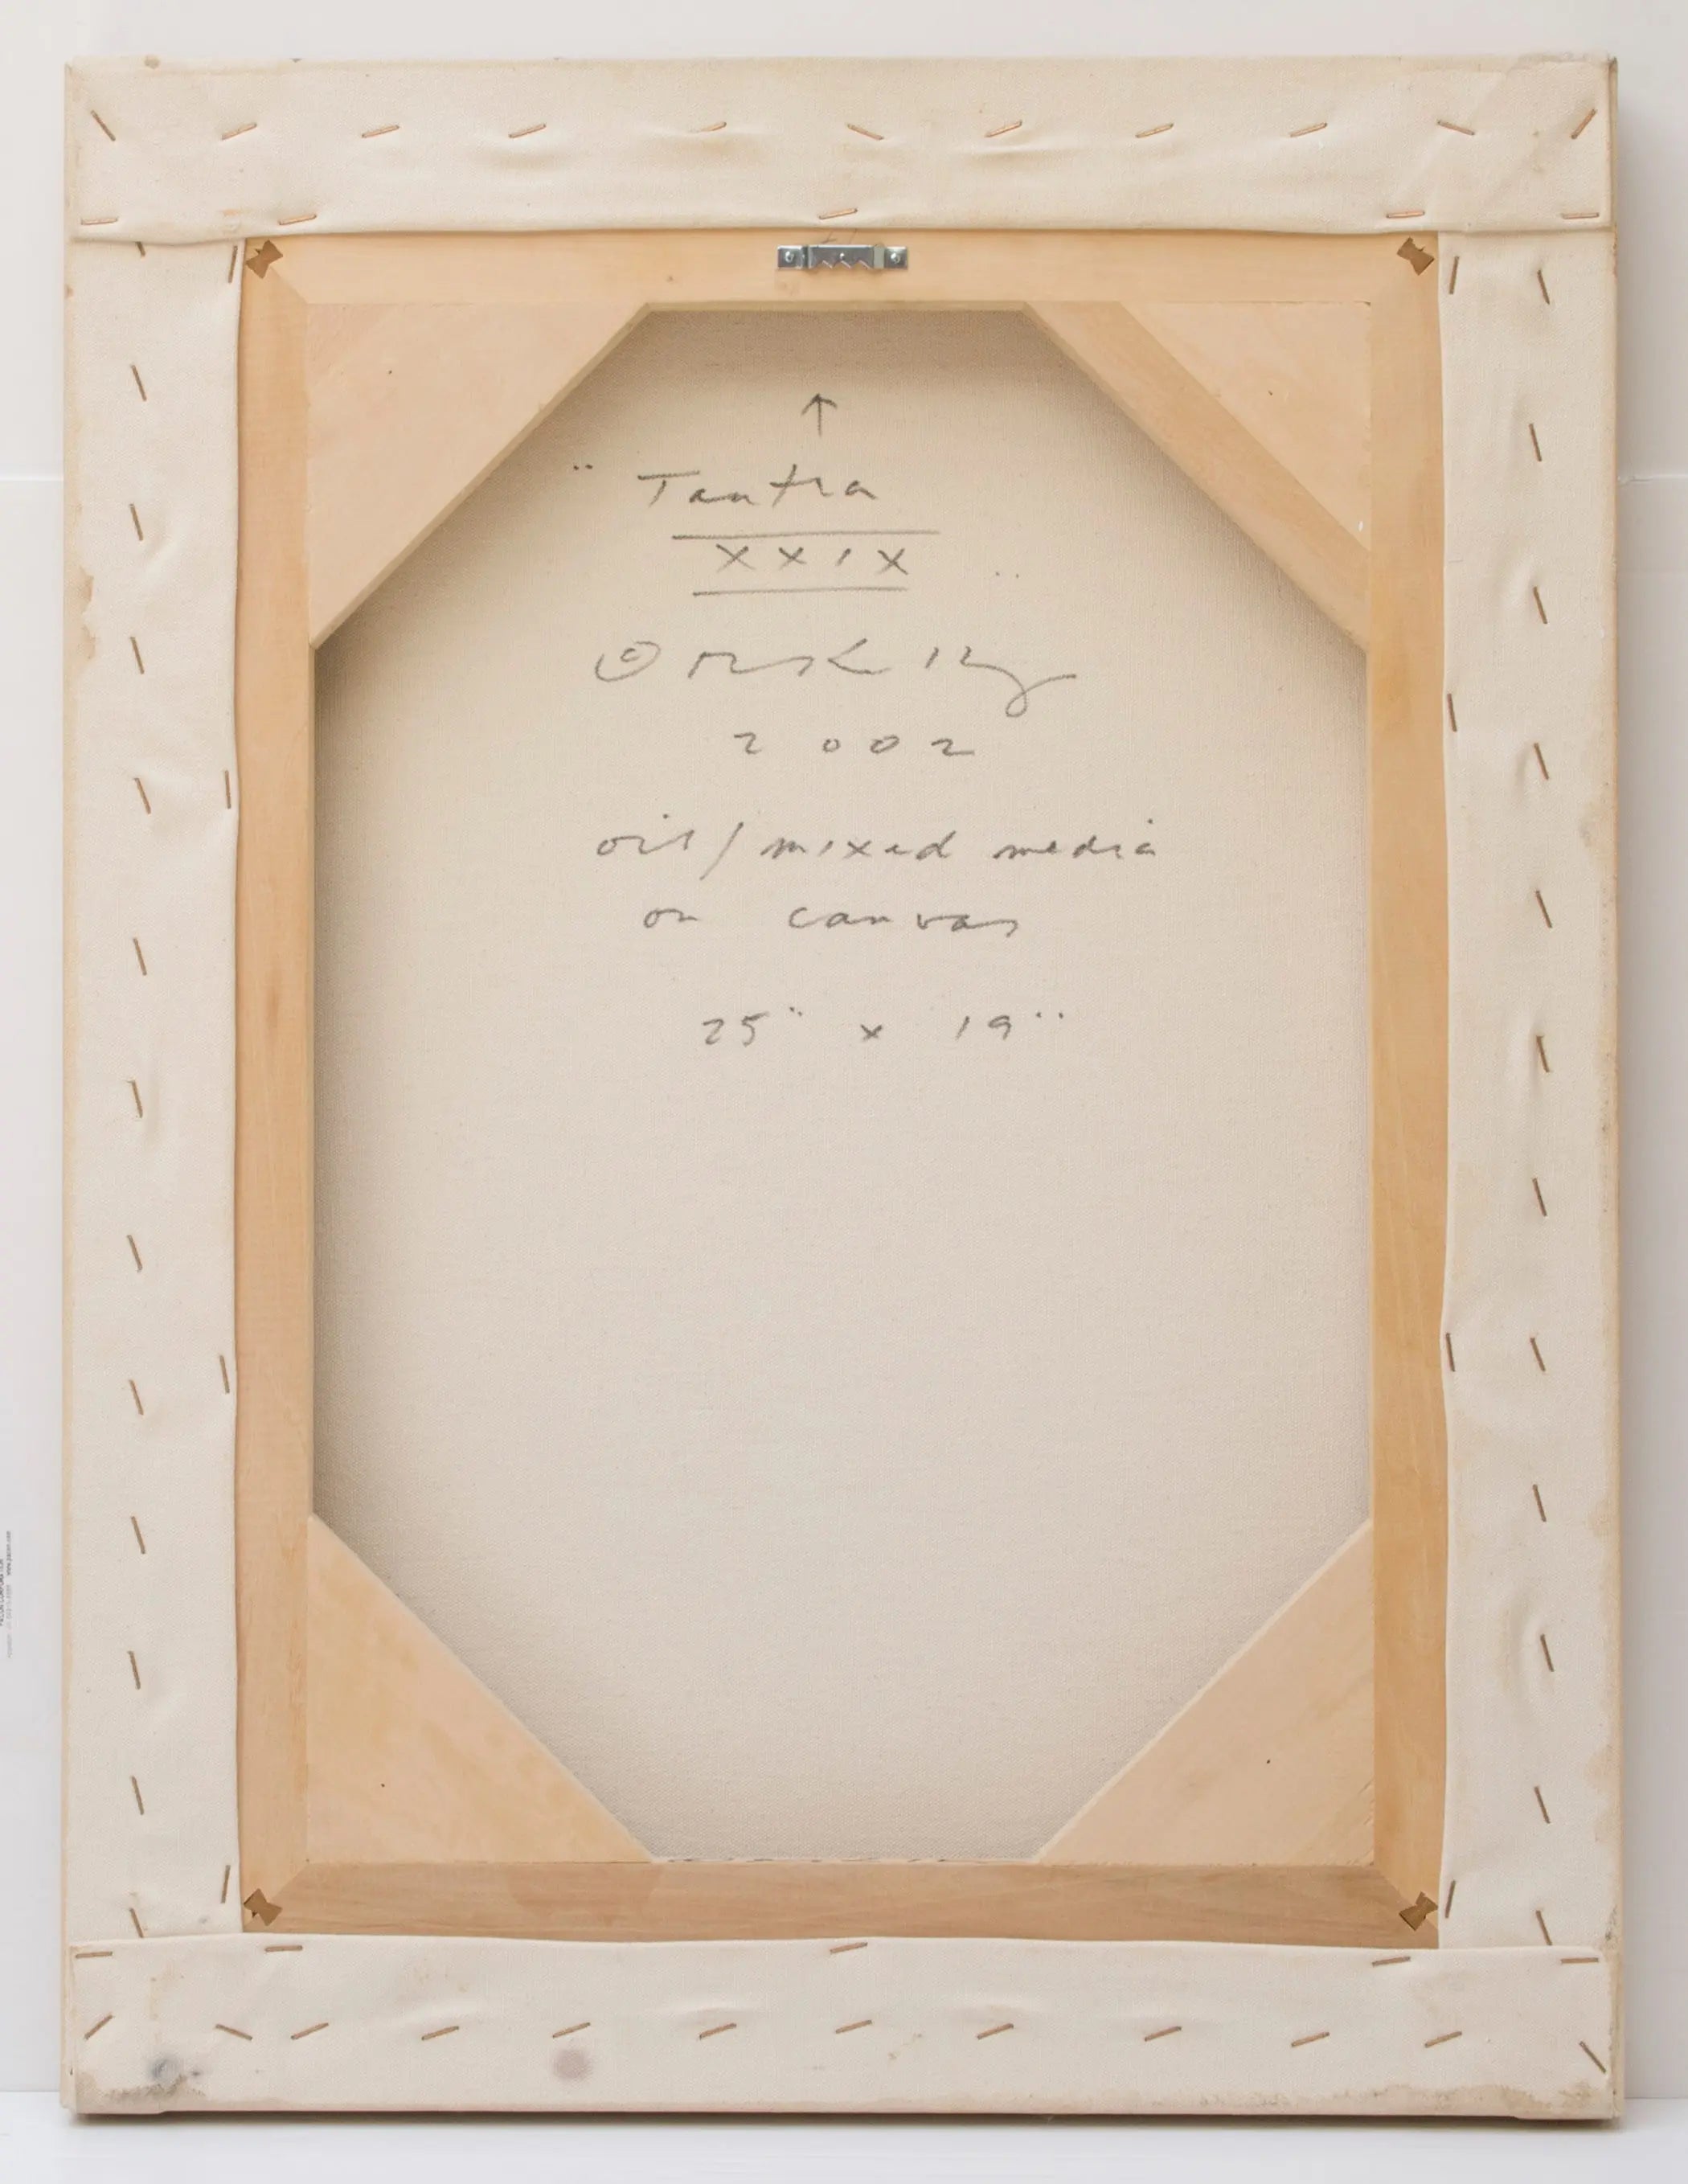 ↑
" Tantra
XXIX "
©
2002
oil / mixed media
on canvas
25" x 19"